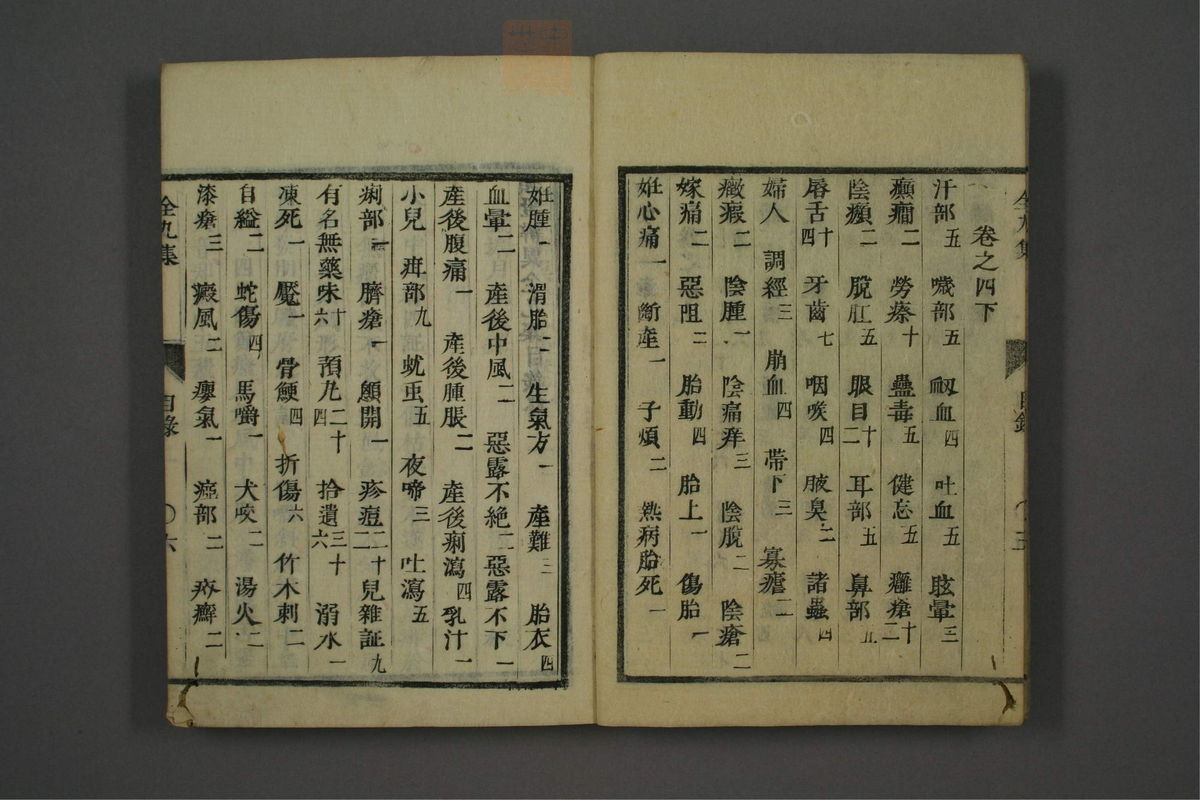 卷之四下
汗部五 噦部五 衂血四 吐血五 眩暈三
癲癎二 勞瘵十 蠱毒五 健忘五 癰瘡十二
陰㿗二 脫肛五 眼目十二 耳部五 鼻部五
唇舌十四 牙齒七 咽喉四 腋臭二 諸蟲四
婦人 調經三 崩血四 帶下三 寡
癥瘕二 陰腫一 陰痛痒三 陰脫二 陰瘡二
嫁痛二 惡阻二 胎動四 胎上一 傷胎一
妊心痛一 斷產一 子煩二 熱病胎死一
妊腫一 滑胎二 生氣方一 產難三 胎衣四
血暈二 產後中風二 惡露不絕二 惡露不下一
產後腹痛一 產後腫脹二 產後痢瀉四 乳汁一
小兒 疳部九 蚘虫五 夜啼三 吐瀉五
痢部二 臍瘡一 顖開一 疹痘二十二 兒雜証九
有名無藥味十六 預九二十四 拾遺三十六 溺水一
凍死一 魘一 骨鯁四 折傷六 竹木刺二
自縊二 蛇傷四 馬嚼一 犬咬二 湯火二
漆瘡三 癜風二 癭氣一 部二 疥癬二
全九集
目錄
六